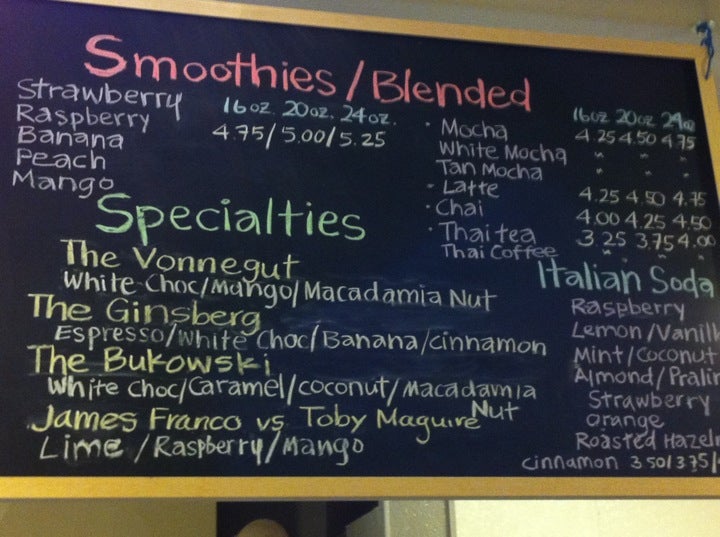 Smoothies/Blended
Strawberry
Raspberry
Banana
Peach
Mango
16oz. 20oz. 24oz.
4.75/5.00/5.25
· Mocha
White Mocha
Tan Mocha
· Latte
· Chai
· Thai tea
Thai Coffee
16oz 20oz 24oz
4.25 4.50 4.75
" " "
" " "
4.25 4.50 4.75
4.00 4.25 4.50
3.25 3.75 4.00
" " "
Specialties
The Vonnegut
White Choc/Mango/Macadamia Nut
The Ginsberg
Espresso/White Choc/Banana/cinnamon
The Bukowski
White Choc/Caramel/coconut/Macadamia Nut
James Franco vs Toby Maguire
Lime/Raspberry/Mango
Italian Soda
Raspberry
Lemon/Vanill
Mint/Coconut
Almond/Pralin
Strawberry
orange
Roasted Hazeln
cinnamon 3.50/3.75/